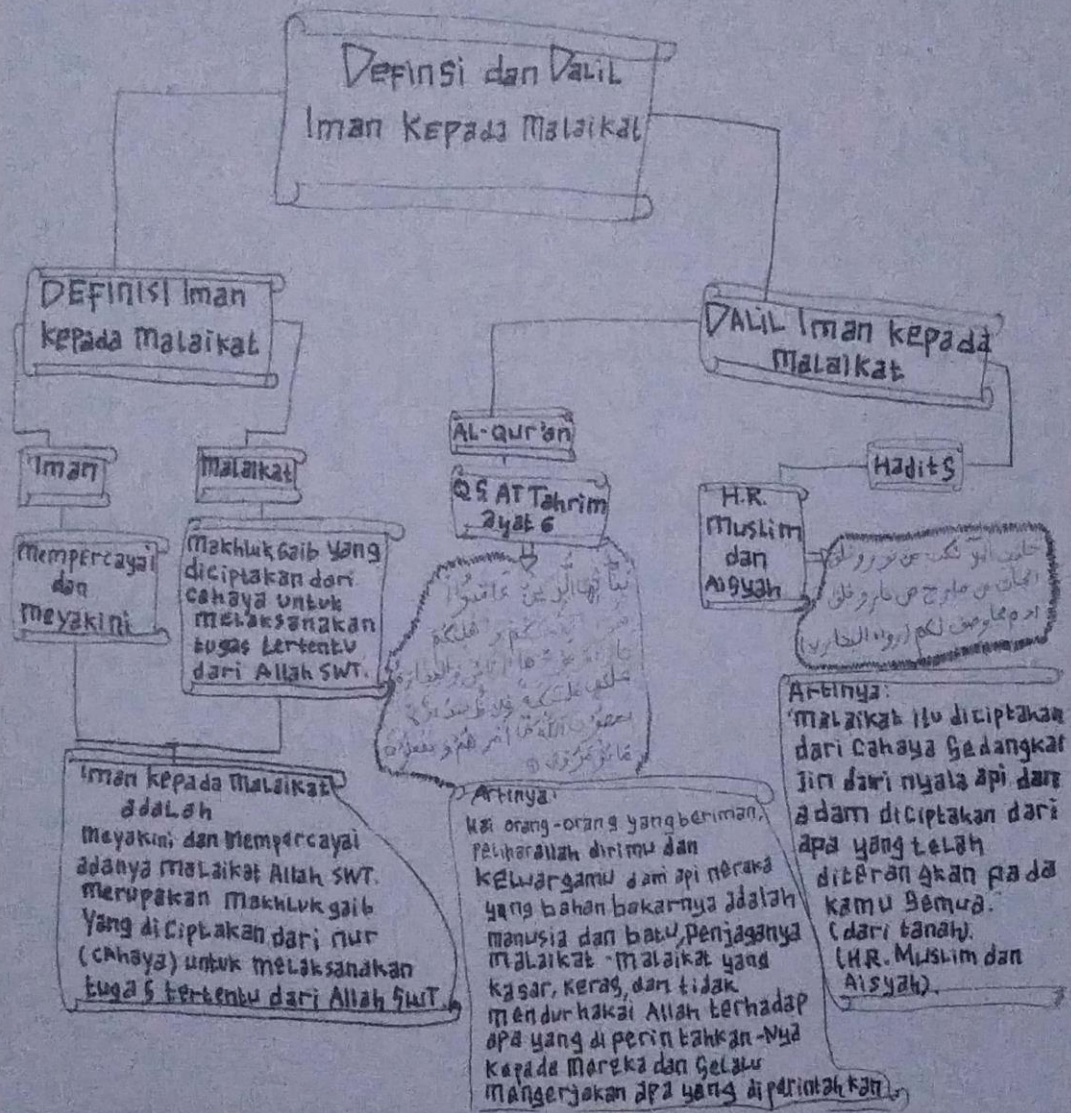 DEFinSi dan DALiL
Iman KEPada Malaikat
DEFINISI Iman
kepada Malaikat
DALIL Iman kepada
MaLaikat
Iman
Malaikat
AL-qur'an
HaditS
QS AT Tahrim
ayat 6
H.R.
Muslim
dan
Aisyah
Mempercayai
dan
meyakini
Makhluk Gaib yang
diciptakan dari
cahaya untuk
melaksanakan
tugas tertentu
dari Allah SWT.
Iman kepada Malaikat
adalah
meyakini dan mempercayai
adanya malaikat Allah SWT.
merupakan Makhluk gaib
yang diciptakan dari nur
(cahaya) untuk melaksanakan
tugas tertentu dari Allah SWT.
Artinya:
Hai orang-orang yang beriman,
peliharallah dirimu dan
keluargamu dari api neraka
yang bahan bakarnya adalah
manusia dan batu, Penjaganya
malaikat-malaikat yang
kasar, keras, dan tidak
mendurhakai Allah terhadap
apa yang diperintahkan-Nya
kepada mereka dan Selalu
mengerjakan apa yang diperintahkan.
Artinya:
"malaikat itu diciptakan
dari cahaya Sedangkat
Jin dari nyala api dan
adam diciptakan dari
apa yang telah
diterangkan pada
kamu Semua.
(dari tanah).
(HR. Muslim dan
Aisyah).